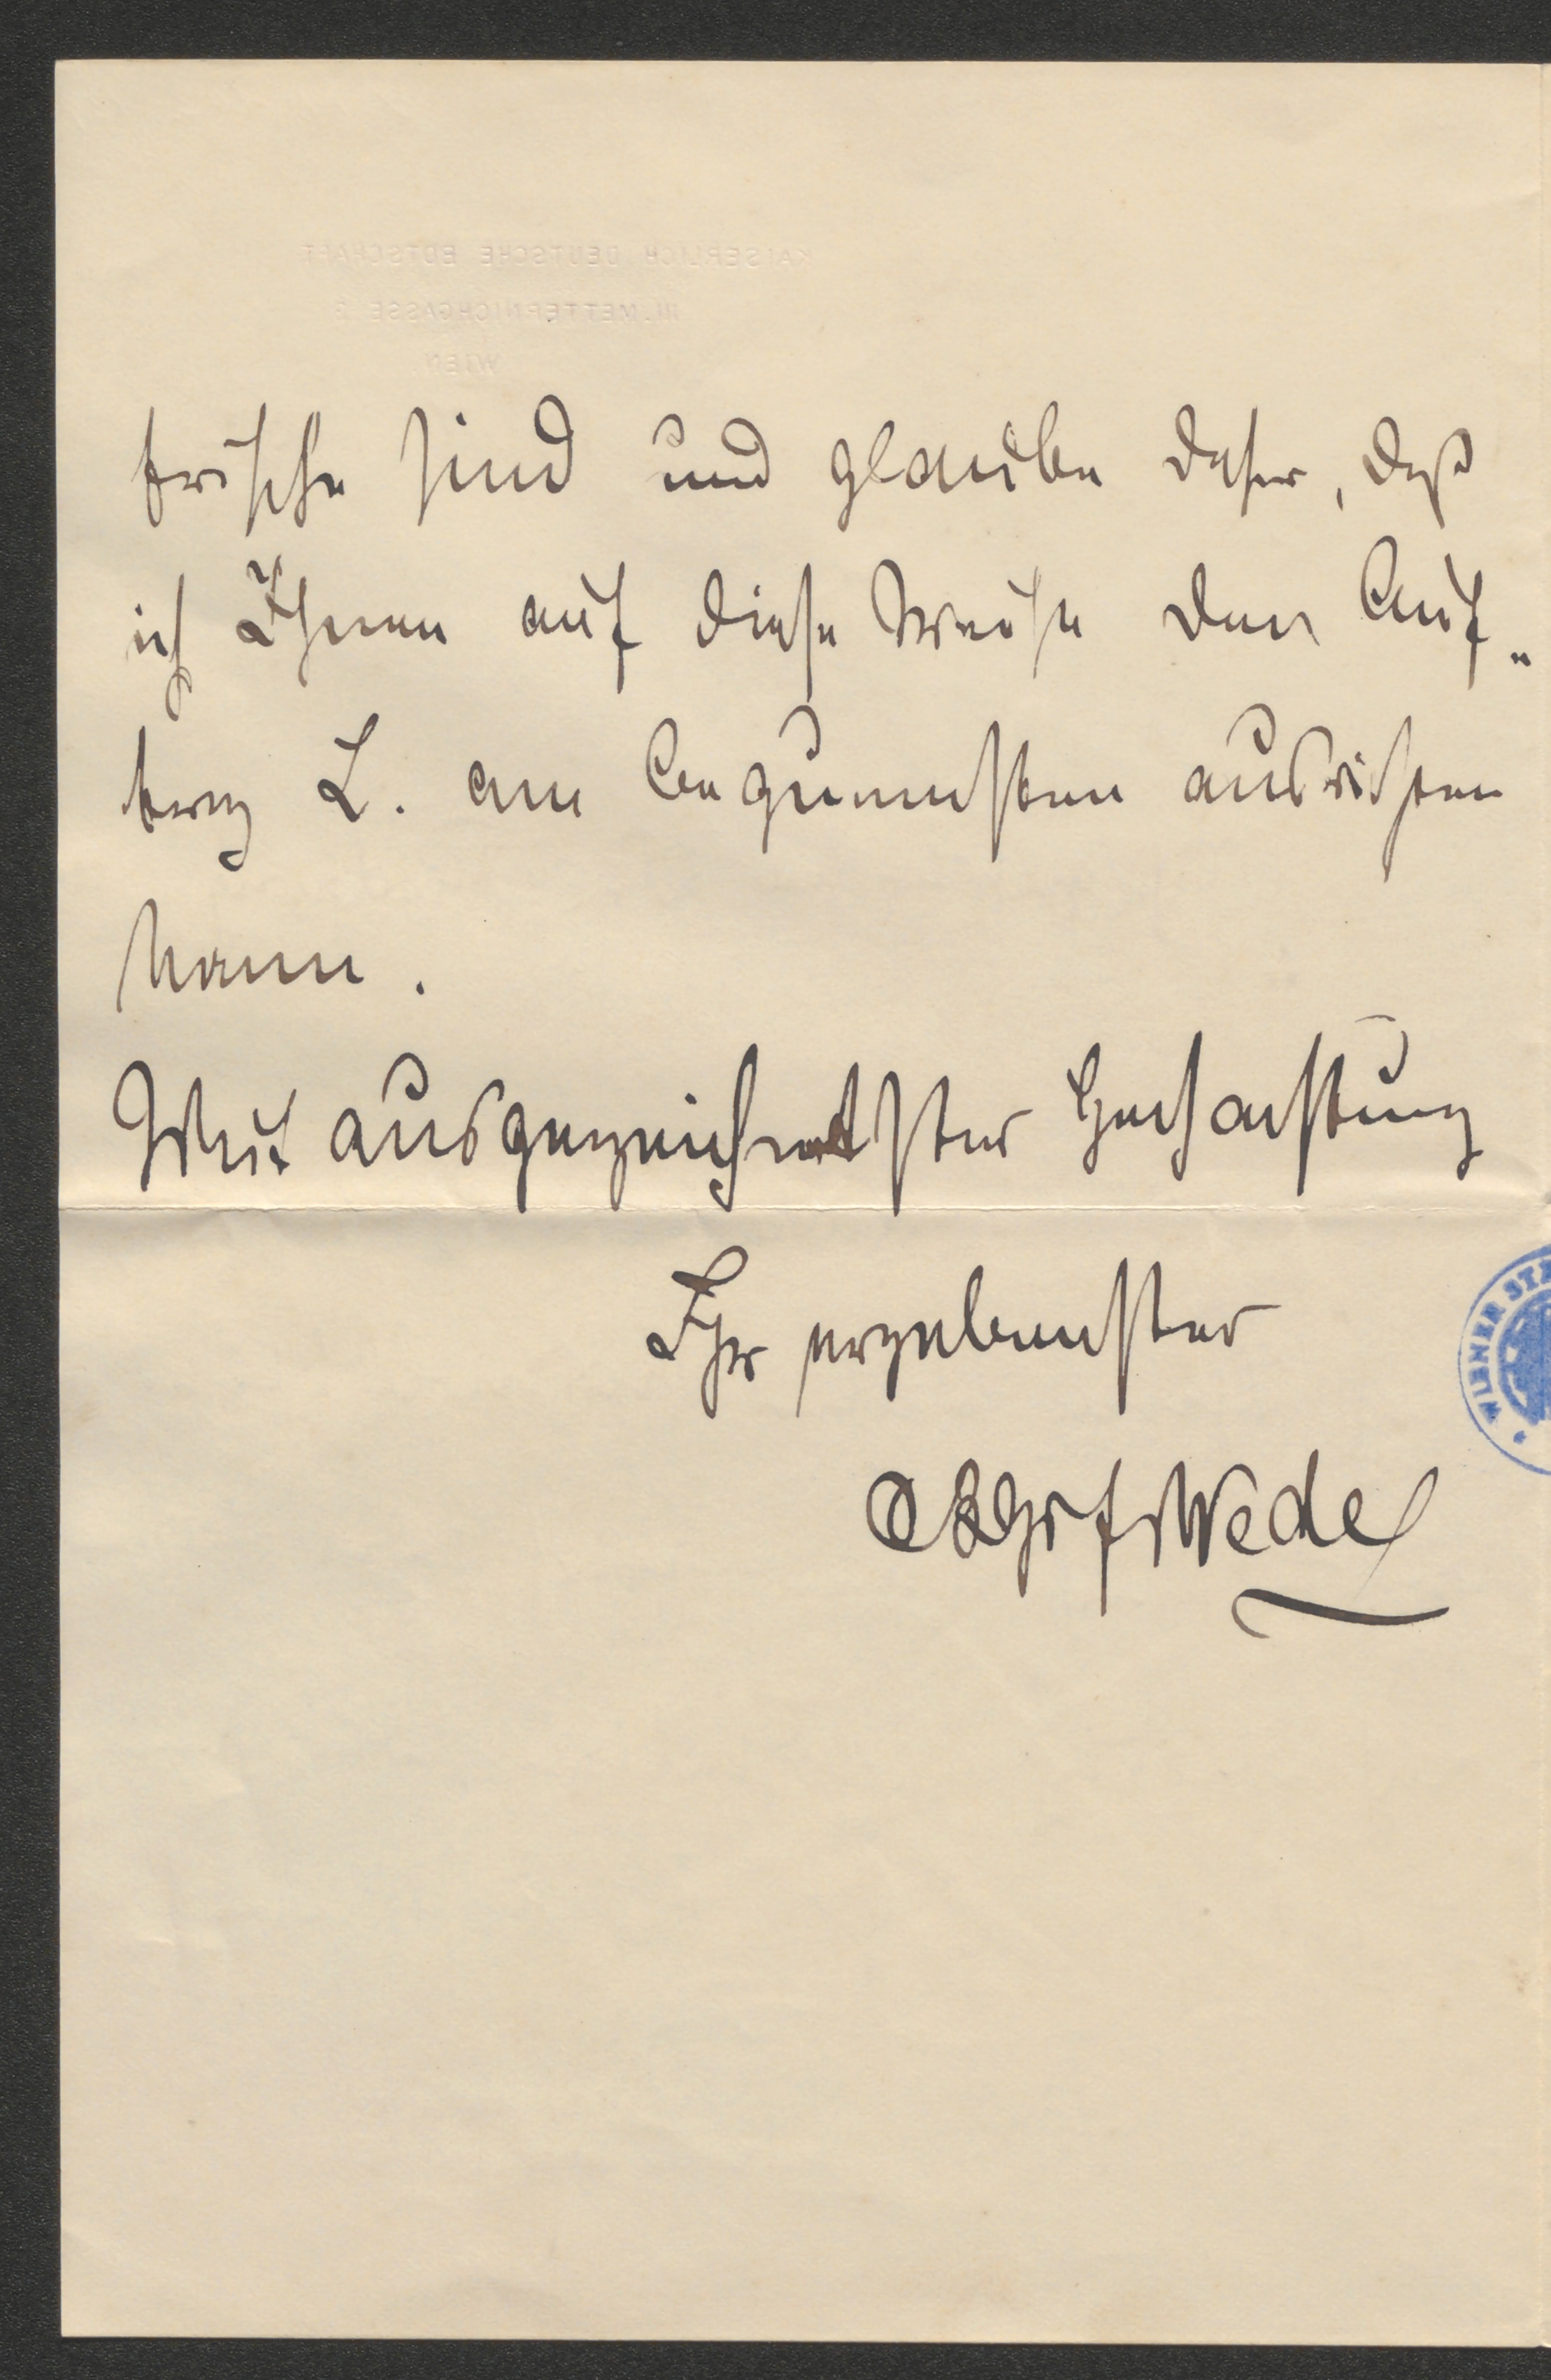 KAISERLICH DEUTSCHE BOTSCHAFT
III. METTERNICHGASSE 3
WIEN.
frische sind und glaube daher, daß
ich Ihnen auf diese Weise den Auf-
trag L. am bequemsten ausrichten
kann.
Mit ausgezeichnetster Hochachtung
Ihr ergebenster
Wedel
WIENER ST